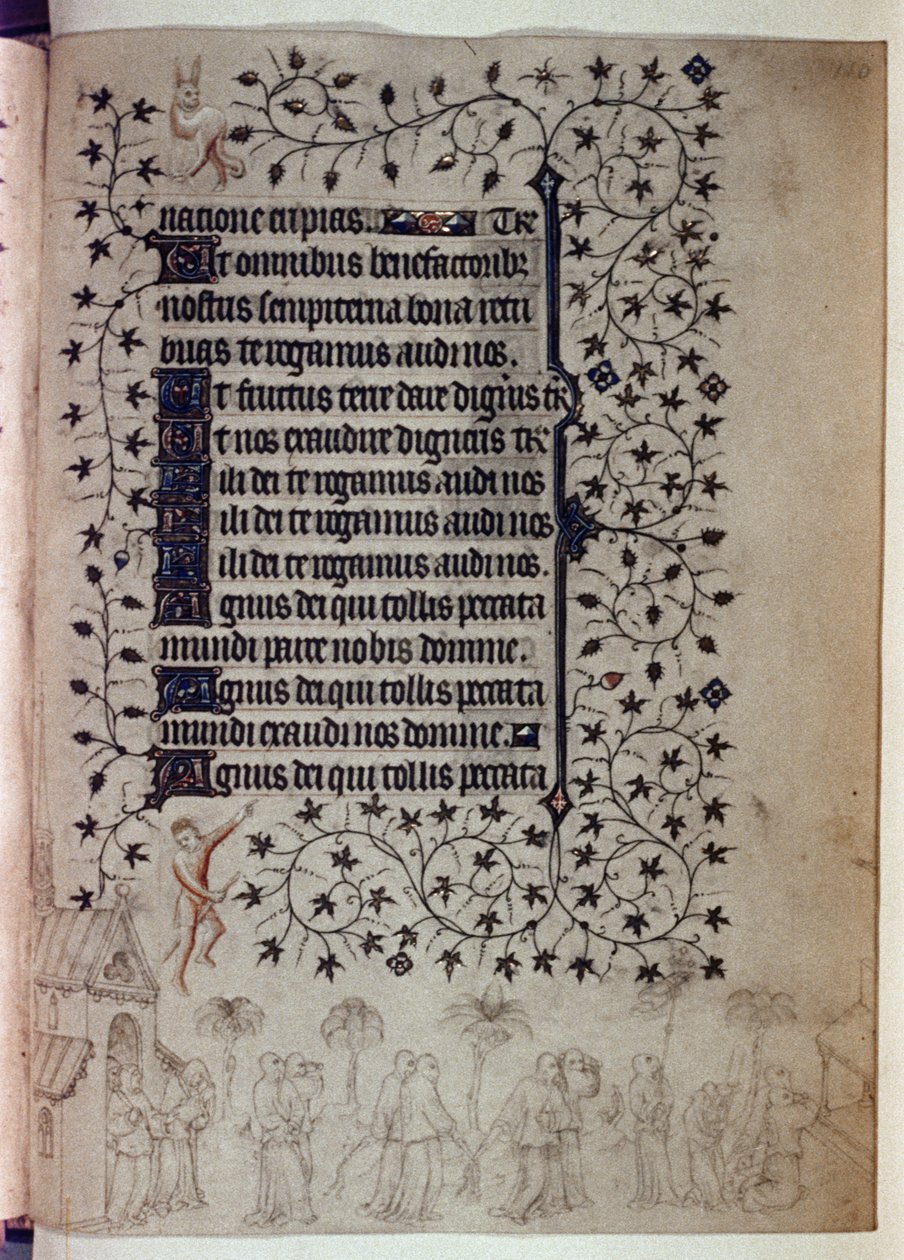 110
natione eripias. Te r̄
Ut omnibus benefactorib3
nostris sempiterna bona retri
buas te rogamus audi nos.
Ut fructus terre dare dign̄is te r̄
Ut nos exaudire digneris te r̄
Fili dei te rogamus audi nos
Fili dei te rogamus audi nos
Fili dei te rogamus audi nos.
Agnus dei qui tollis peccata
mundi parce nobis domine.
Agnus dei qui tollis peccata
mundi exaudi nos domine.
Agnus dei qui tollis peccata